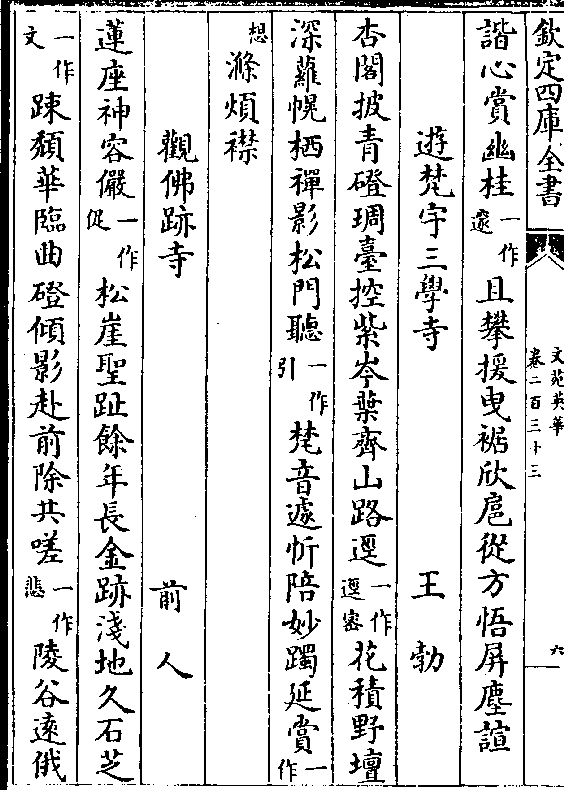 欽定四庫全書
文苑英華
卷二百三十三
六
諧心賞幽桂一作邃且攀援曳裾欣扈從方悟屏塵諠
遊梵宇三學寺 王勃
杏閣披青磴琱臺控紫岑葉齊山路遥一作逕密花積野壇
深蘿幌栖禪影松門聽一作引梵音遽忻陪妙躅延賞一作
想滌煩襟
觀佛跡寺 前人
蓮座神容儼一作促松崖聖趾餘年長金跡淺地久石芝
一作文踈頽華臨曲磴傾影赴前除共嗟一作悲陵谷遠俄